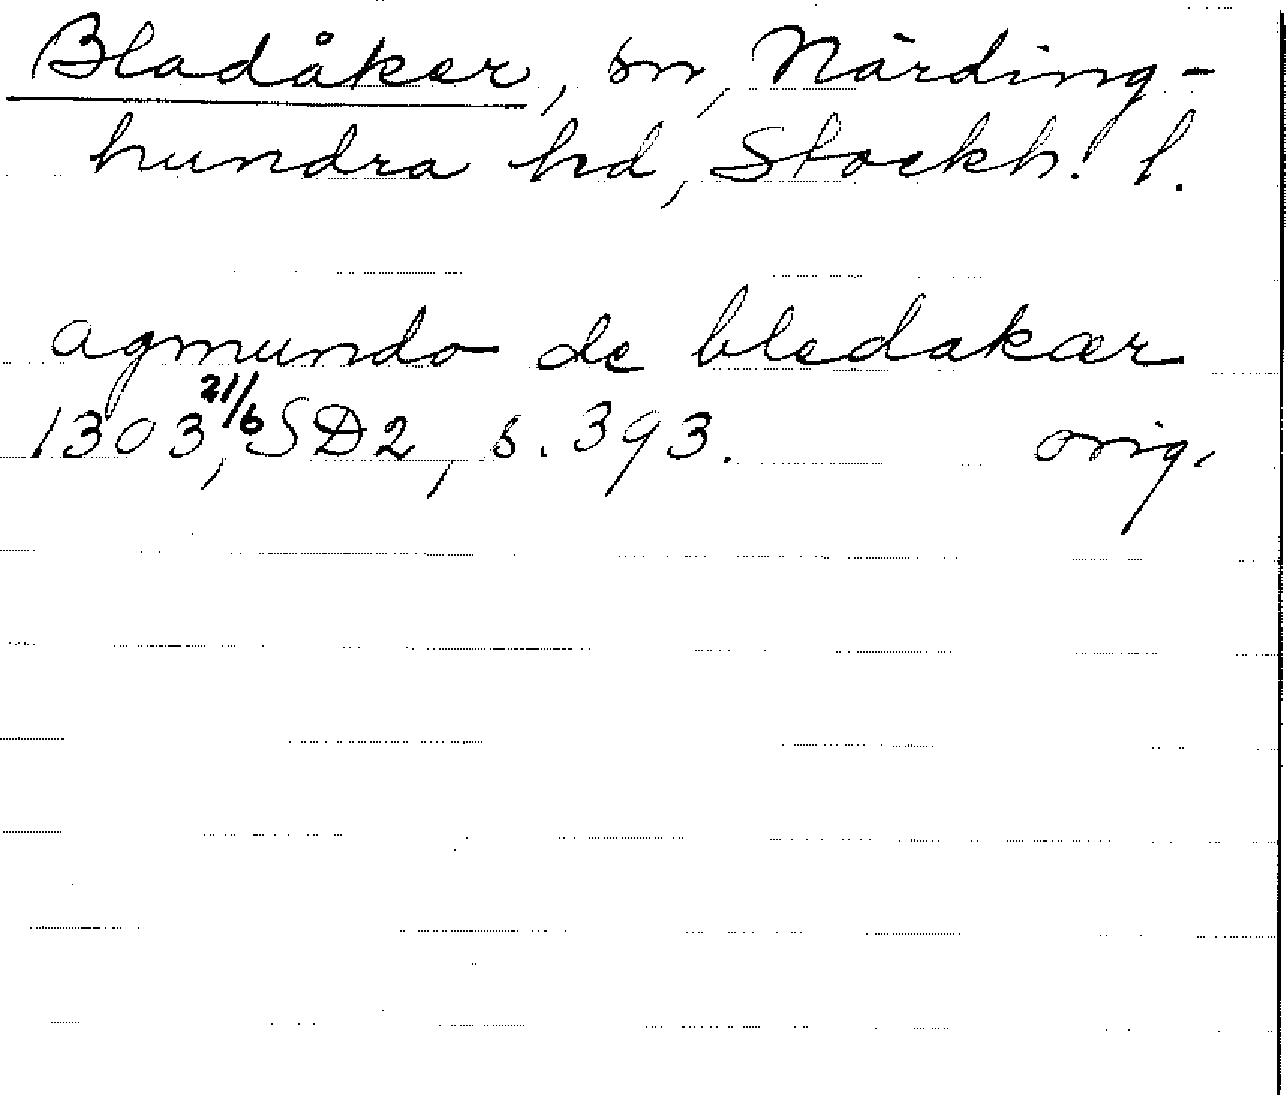 Bladåker, sn, Närding-
hundra hd, Stockh. l.
agmundo de bledakær
1303 21/6, SD2, s. 393. orig.